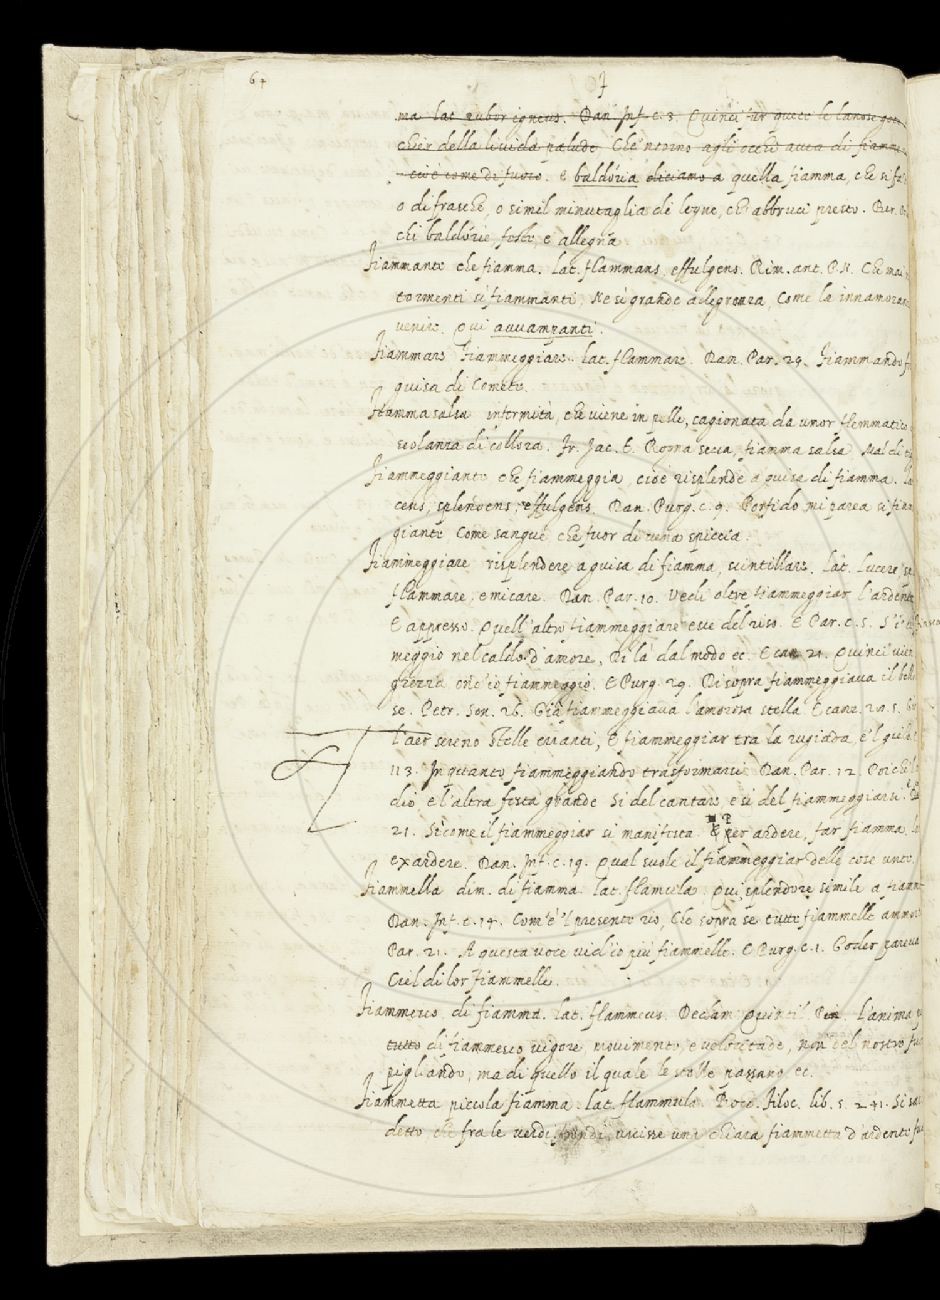 64
F
ma lat. rubor igneus. Dan. Inf. c. 3. Quinci fur quete le lanose gote
chier della livida palude Che ntorno agli occhi avea di fiamme
cioè come di fuoco. e baldória diciamo a quella fiamma, che si fa
o di frasche, o simil minutaglia di legne, ch' abbruci presto.
chi baldórie, festa, e allegria
Fiammante che fiamma. lat. flammans, effulgens. Rim. ant. P. N. Che mai
tormenti sì fiammanti, Ne sì grande allegrenza, Come la innamoranza
venire. qui avvampanti.
Fiammare Fiammeggiare. lat. flammare. Dan. Par. 24. Fiammando
guisa di Comete.
Fiamma salsa infermità, che viene in pelle, cagionata da umor flemmatico
scolanza di collora. Fr. Jac. T. Rogna secca, fiamma salsa Mal di
Fiammeggiante che fiammeggia, cioè risplende a guisa di fiamma.
cens, splendens, effulgens. Dan. Purg. c. 9. Porfido mi parea sì fiam
giante Come sangue che fuor di vena spiccia.
Fiammeggiare risplendere a guisa di fiamma, scintillare. lat. lucere
flammare, emicare. Dan. Par. 10. Vedi oltre fiammeggiar l'ardente
E appresso. Quell' altro fiammeggiare esce del riso. E Par. c. 5. S'i
meggio nel caldo d'amore, Di là dal modo ec. E can. 21. Quinci vien
grezza ond' io fiammeggio. E Purg. 29. Di sopra fiammeggiava il bello
se. Petr. Son. 26. Già fiammeggiava l'amorosa stella E canz. 29. 5.
l'aer sereno Stelle erranti, E fiammeggiar tra la rugiada, e 'l
113. In quanto fiammeggiando trasformarvi Dan. Par. 12. Poichè
dio, e l'altra festa grande Sì del cantare, e sì del fiammeggiarsi.
21. Sì come il fiammeggiar si manifesta. E per ardere, far fiamma.
exardere. Dan. Inf. c. 19. Qual suole il fiammeggiar delle cose unte,
Fiammella dim. di fiamma. lat. flamula. qui splendore simile a fiamm
Dan. Inf. c. 14. Com' è 'l presente rio, Che sopra se tutte fiammelle ammor
Par. 21. A questa voce vid' io più fiammelle. E Purg. c. 1. Goder pareva
Ciel di lor fiammelle.
Fiammesco di fiamma. lat. flammeus. Declam. Quintil. L'anima
tutto di fiammesco vigore movimento, e velocitade, non del nostro
pigliando, ma di quello il quale le stelle passano ec.
Fiammetta piccola fiamma. lat. flammula. Bocc. Filoc. lib. 5. 241. Si
detto che fra le verdi frondi, uscisse una chiara fiammetta d'ardente